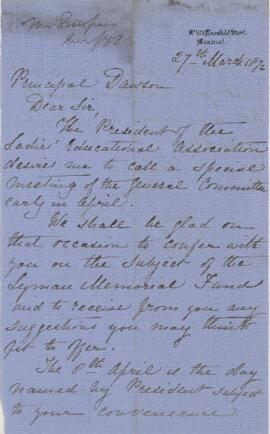 Mansfield Street,
Montreal.
27th March 1892
Principal Dawson
Dear Sir,
The President of the
Ladies' Educational Association
desires me to call a special
meeting of the General Committee
early in April.
We shall be glad on
that occasion to confer with
you on the subject of the
Lyman Memorial Fund
and to receive from you any
suggestions you may think
fit to offer.
The 8th April is the day
named by President subject
to your convenience